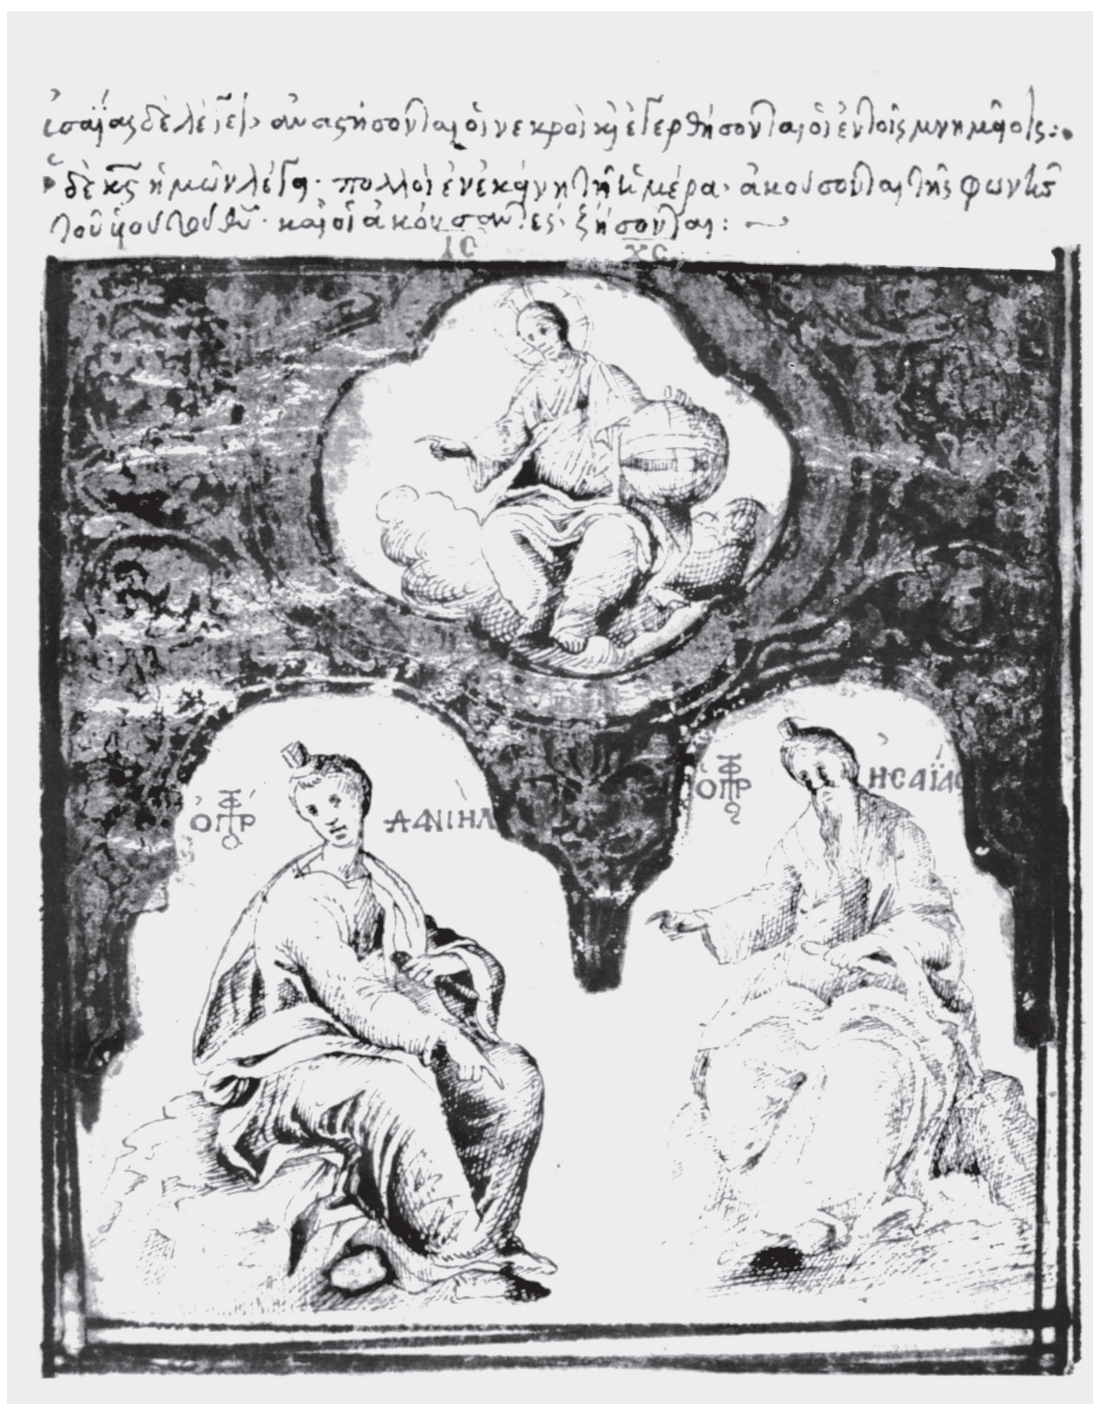 ἡσαΐας δὲ λέγει· ἀναστήσονται οἱ νεκροὶ κ(αὶ) ἐγερθήσονται οἱ ἐν τοῖς μνημείοις:
ὁ δὲ κ̅ς̅ ἡμῶν λέγει· πολλοὶ ἐν ἐκείνη τῆ ἡμέρα· ἀκούσονται τῆς φωνῆς
τοῦ υἱοῦ τοῦ θ̅υ̅· καὶ οἱ ἀκούσαντες· ζήσονται:
ΙC ΧC
Ὁ ΠΡΦ ΔΑΝΙΗΛ
Ὁ ΠΡΦ ἩCΑΪΑC